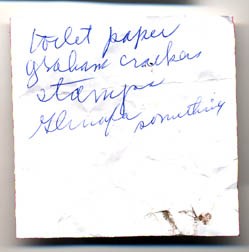 toilet paper
graham crackers
stamps
something